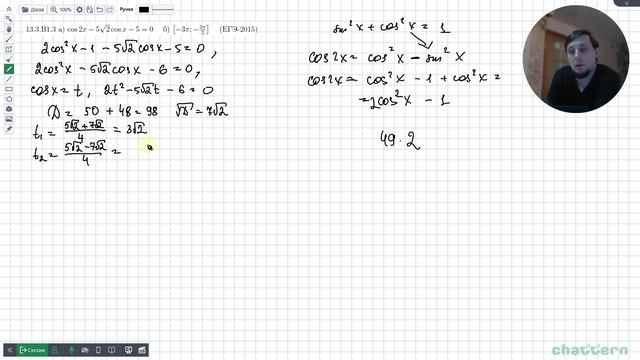 Доска
100%
Ручка
13.3.B1.3 a) cos 2x − 5√2 cos x − 5 = 0 б) [−3π; −3π/2] (ЕГЭ-2015)
2cos²x − 1 − 5√2 cosx − 5 = 0,
2cos²x − 5√2 cosx − 6 = 0,
cosx = t, 2t² − 5√2t − 6 = 0
D = 50 + 48 = 98 √D = 7√2
t₁ = (5√2 + 7√2)/4 = 3√2
t₂ = (5√2 − 7√2)/4 =
sin²x + cos²x = 1
cos2x = cos²x − sin²x
cos2x = cos²x − 1 + cos²x =
= 2cos²x − 1
49·2
Сессия
chattern